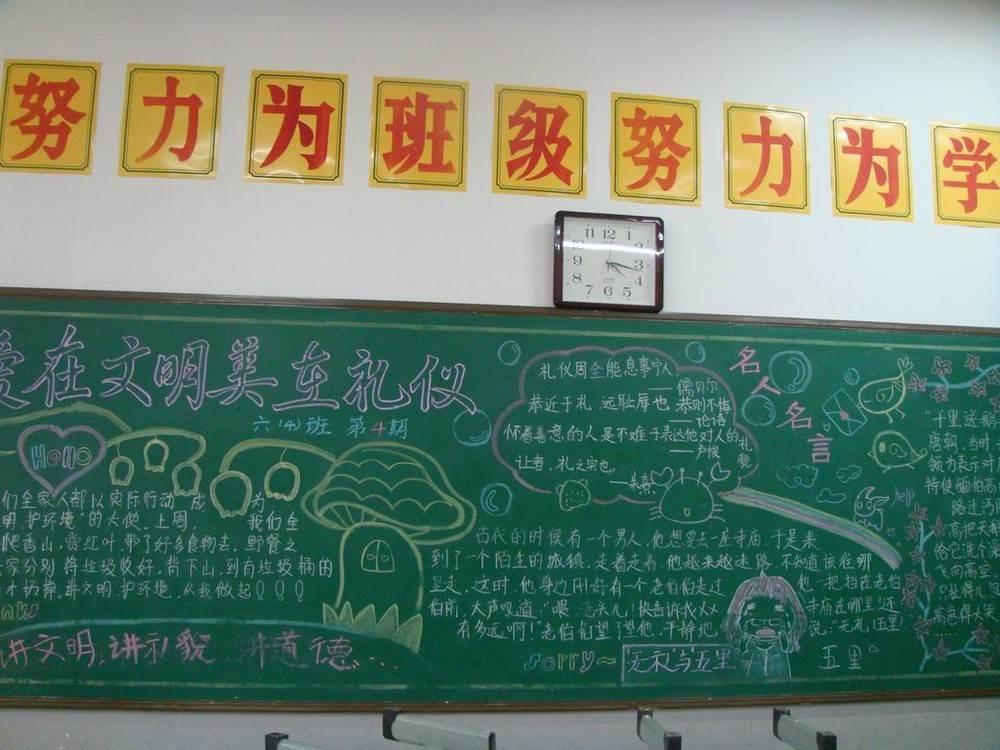 努力为班级努力为学
11 12 1
9 3
8 4
7 6 5
爱在文明美在礼仪
六(4)班 第4期
Hello
们全家人都以实际行动 成为
明 护环境"的大使. 上周. 我们全
爬香山,赏红叶.带了好多食物去.野餐之
家分别将垃圾收好,背下山,到有垃圾桶的
讲文明.护环境.从我做起!!!
讲文明,讲礼貌 讲道德...
礼仪周全能息事宁人
——儒贝尔
恭近于礼,远耻辱也 恭则不侮
——论语
怀着善意的人是不难于表达他对人的礼貌
——卢梭
让者,礼之实也
——朱熹
名人名言
古代的时候有一个男人,他想要去一座寺庙.于是来
到了一个陌生的城镇.走着走着,他越来越走路.不知道该往哪
里走,这时,他身边刚好有一个老伯伯走过 他一把拍在老伯
伯肩,大声吼道:"喂 老头儿!快告诉我 寺庙在哪里!还
有多远啊!"老伯伯望了望他.平静地 说:"无礼(五里)
sorry~
无礼与五里
五里
help!
"千里送鹅
唐朝,当时
我为表示对
特使缅伯高
路过沔
高把天鹅
给它洗个澡
飞向高空
只扯得几
高急得大哭